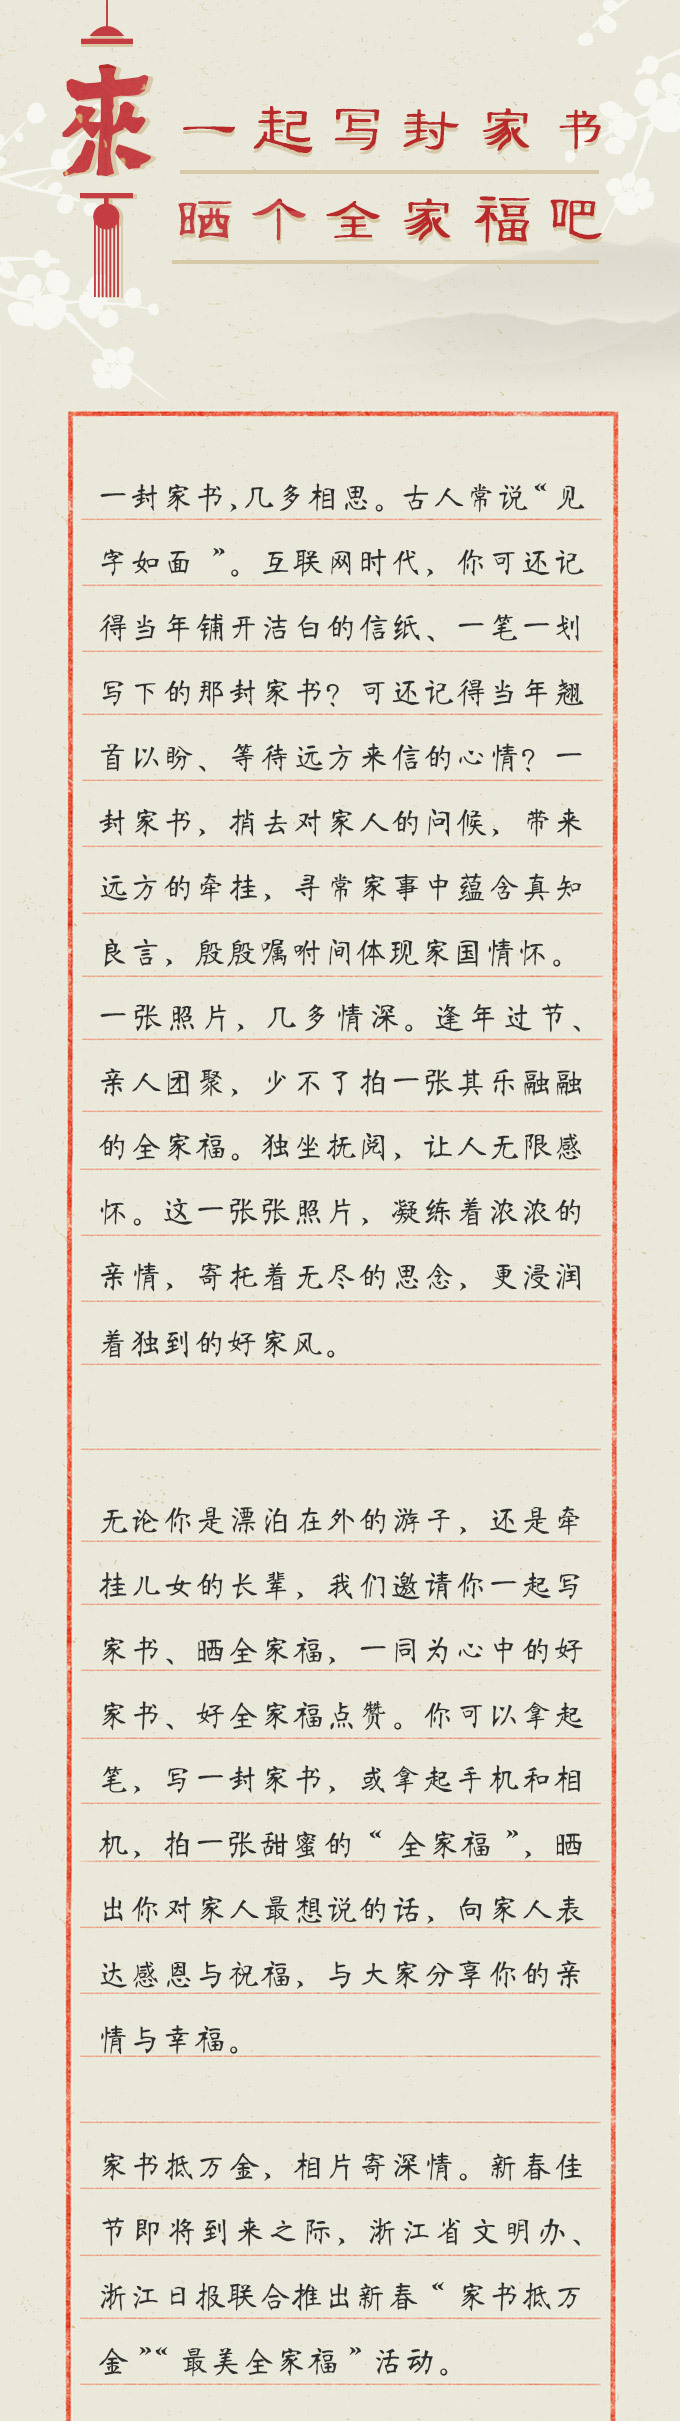 來
一起写封家书
晒个全家福吧
一封家书,几多相思。古人常说“见
字如面 ”。互联网时代，你可还记
得当年铺开洁白的信纸、一笔一划
写下的那封家书？可还记得当年翘
首以盼、等待远方来信的心情？一
封家书，捎去对家人的问候，带来
远方的牵挂，寻常家事中蕴含真知
良言，殷殷嘱咐间体现家国情怀。
一张照片，几多情深。逢年过节、
亲人团聚，少不了拍一张其乐融融
的全家福。独坐抚阅，让人无限感
怀。这一张张照片，凝练着浓浓的
亲情，寄托着无尽的思念，更浸润
着独到的好家风。
无论你是漂泊在外的游子，还是牵
挂儿女的长辈，我们邀请你一起写
家书、晒全家福，一同为心中的好
家书、好全家福点赞。你可以拿起
笔，写一封家书，或拿起手机和相
机，拍一张甜蜜的“ 全家福 ”，晒
出你对家人最想说的话，向家人表
达感恩与祝福，与大家分享你的亲
情与幸福。
家书抵万金，相片寄深情。新春佳
节即将到来之际，浙江省文明办、
浙江日报联合推出新春“ 家书抵万
金 ”“ 最美全家福 ”活动。